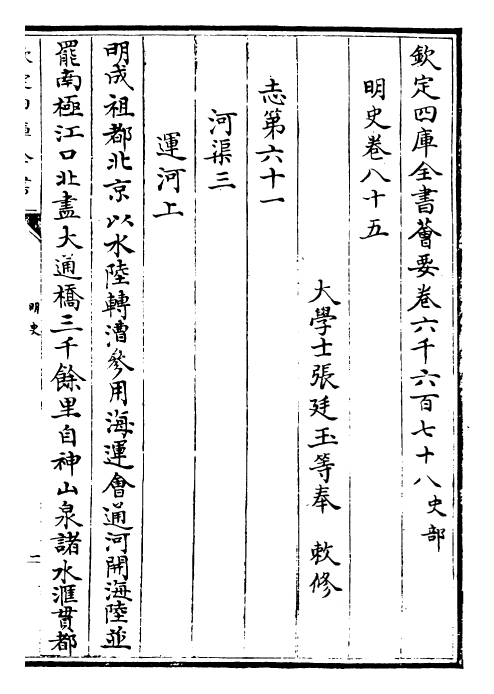 欽定四庫全書薈要卷六千六百七十八史部
明史卷八十五
大學士張廷玉等奉　敕修
志第六十一
河渠三
運河上
明成祖都北京以水陸轉漕參用海運會通河開海陸並
罷南極江口北盡大通橋三千餘里自神山泉諸水滙貫都
欽定四庫全書
明史